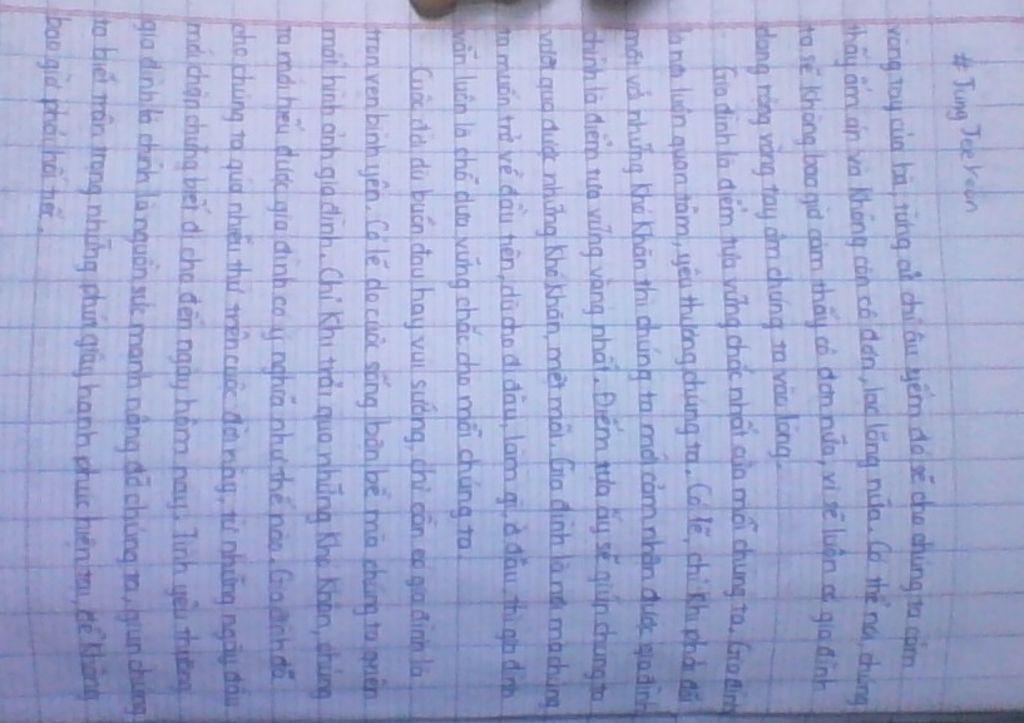 # Jung Jee Yeon
vòng tay của bà, từng cử chỉ âu yếm đó sẽ cho chúng ta cảm
thấy ấm áp và không còn cô đơn, lạc lõng nữa. Có thể nói, chúng
ta sẽ không bao giờ cảm thấy cô đơn nữa, vì sẽ luôn có gia đình
dang rộng vòng tay ôm chúng ta vào lòng.
Gia đình là điểm tựa vững chắc nhất của mỗi chúng ta. Gia đình
là nơi luôn quan tâm, yêu thương chúng ta. Có lẽ, chỉ khi phải đối
mới với những khó khăn thì chúng ta mới cảm nhận được gia đình
chính là điểm tựa vững vàng nhất. Điểm tựa ấy sẽ giúp chúng ta
vượt qua được những khó khăn, mệt mỏi. Gia đình là nơi mà chúng
ta muốn trở về đầu tiên, dù cho đi đâu, làm gì, ở đâu thì gia đình
vẫn luôn là chỗ dựa vững chắc cho mỗi chúng ta
Cuộc đời dù buồn đau hay vui sướng, chỉ cần có gia đình là
trọn vẹn bình yên. Có lẽ do cuộc sống bộn bề mà chúng ta quên
mất hình ảnh gia đình. Chỉ khi trải qua những khó khăn, chúng
ta mới hiểu được gia đình có ý nghĩa như thế nào. Gia đình đã
cho chúng ta quá nhiều thứ trên cuộc đời này, từ những ngày đầu
mới chập chững biết đi cho đến ngày hôm nay. Tình yêu thương
gia đình là chính là nguồn sức mạnh nâng đỡ chúng ta, giúp chúng
ta biết trân trọng những phút giây hạnh phúc hiện tại, để không
bao giờ phải hối tiếc.